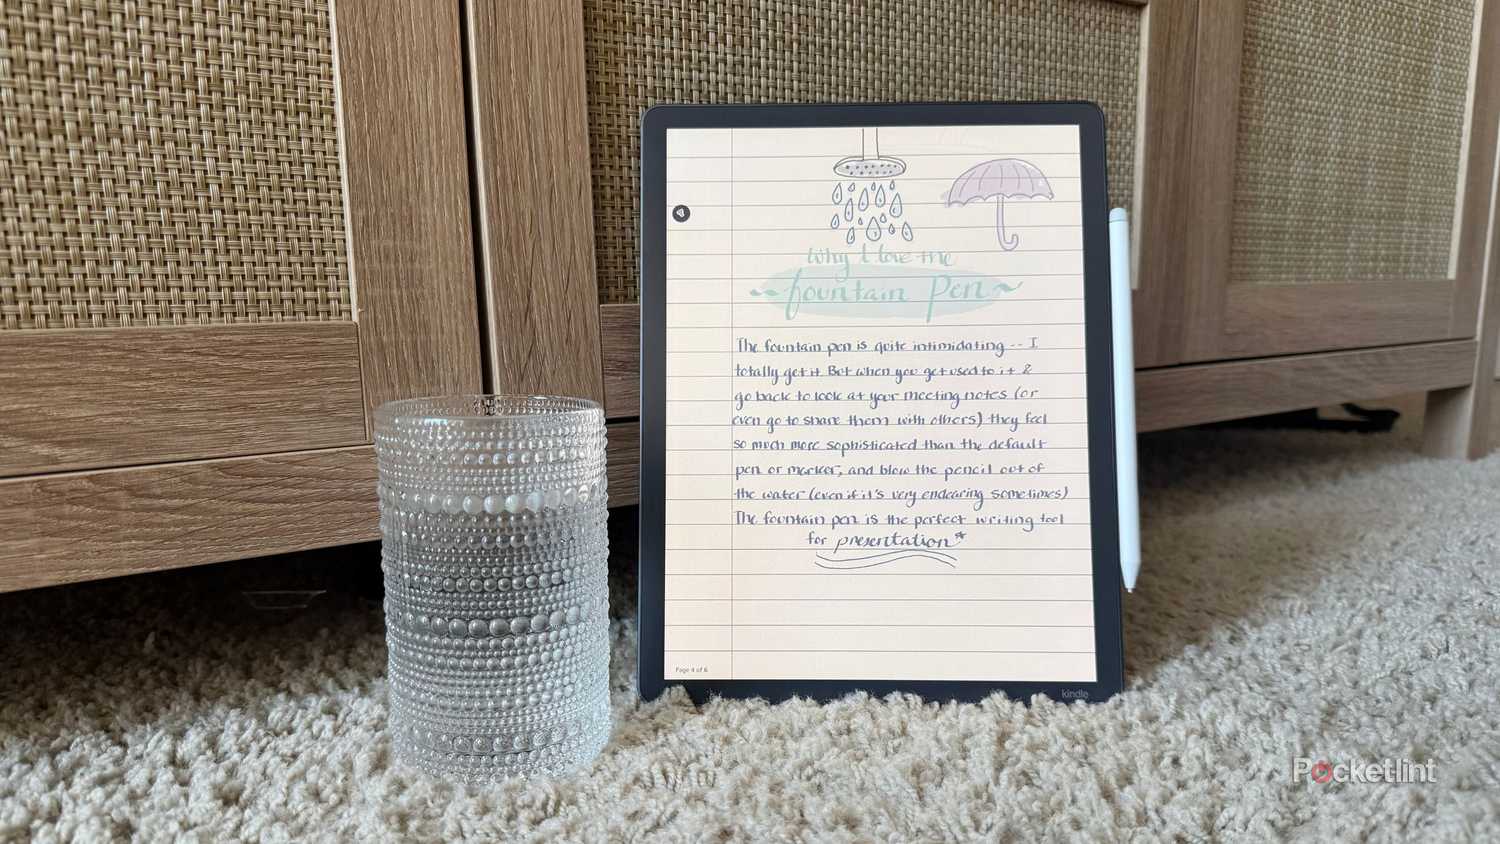 Why I love the
fountain pen
The fountain pen is quite intimidating -- I
totally get it. But when you get used to it &
go back to look at your meeting notes (or
even go to share them with others) they feel
so much more sophisticated than the default
pen or marker, and blow the pencil out of
the water (even if it's very endearing sometimes)
The fountain pen is the perfect writing tool
for presentation*
Page 4 of 6
kindle
Pocketlint